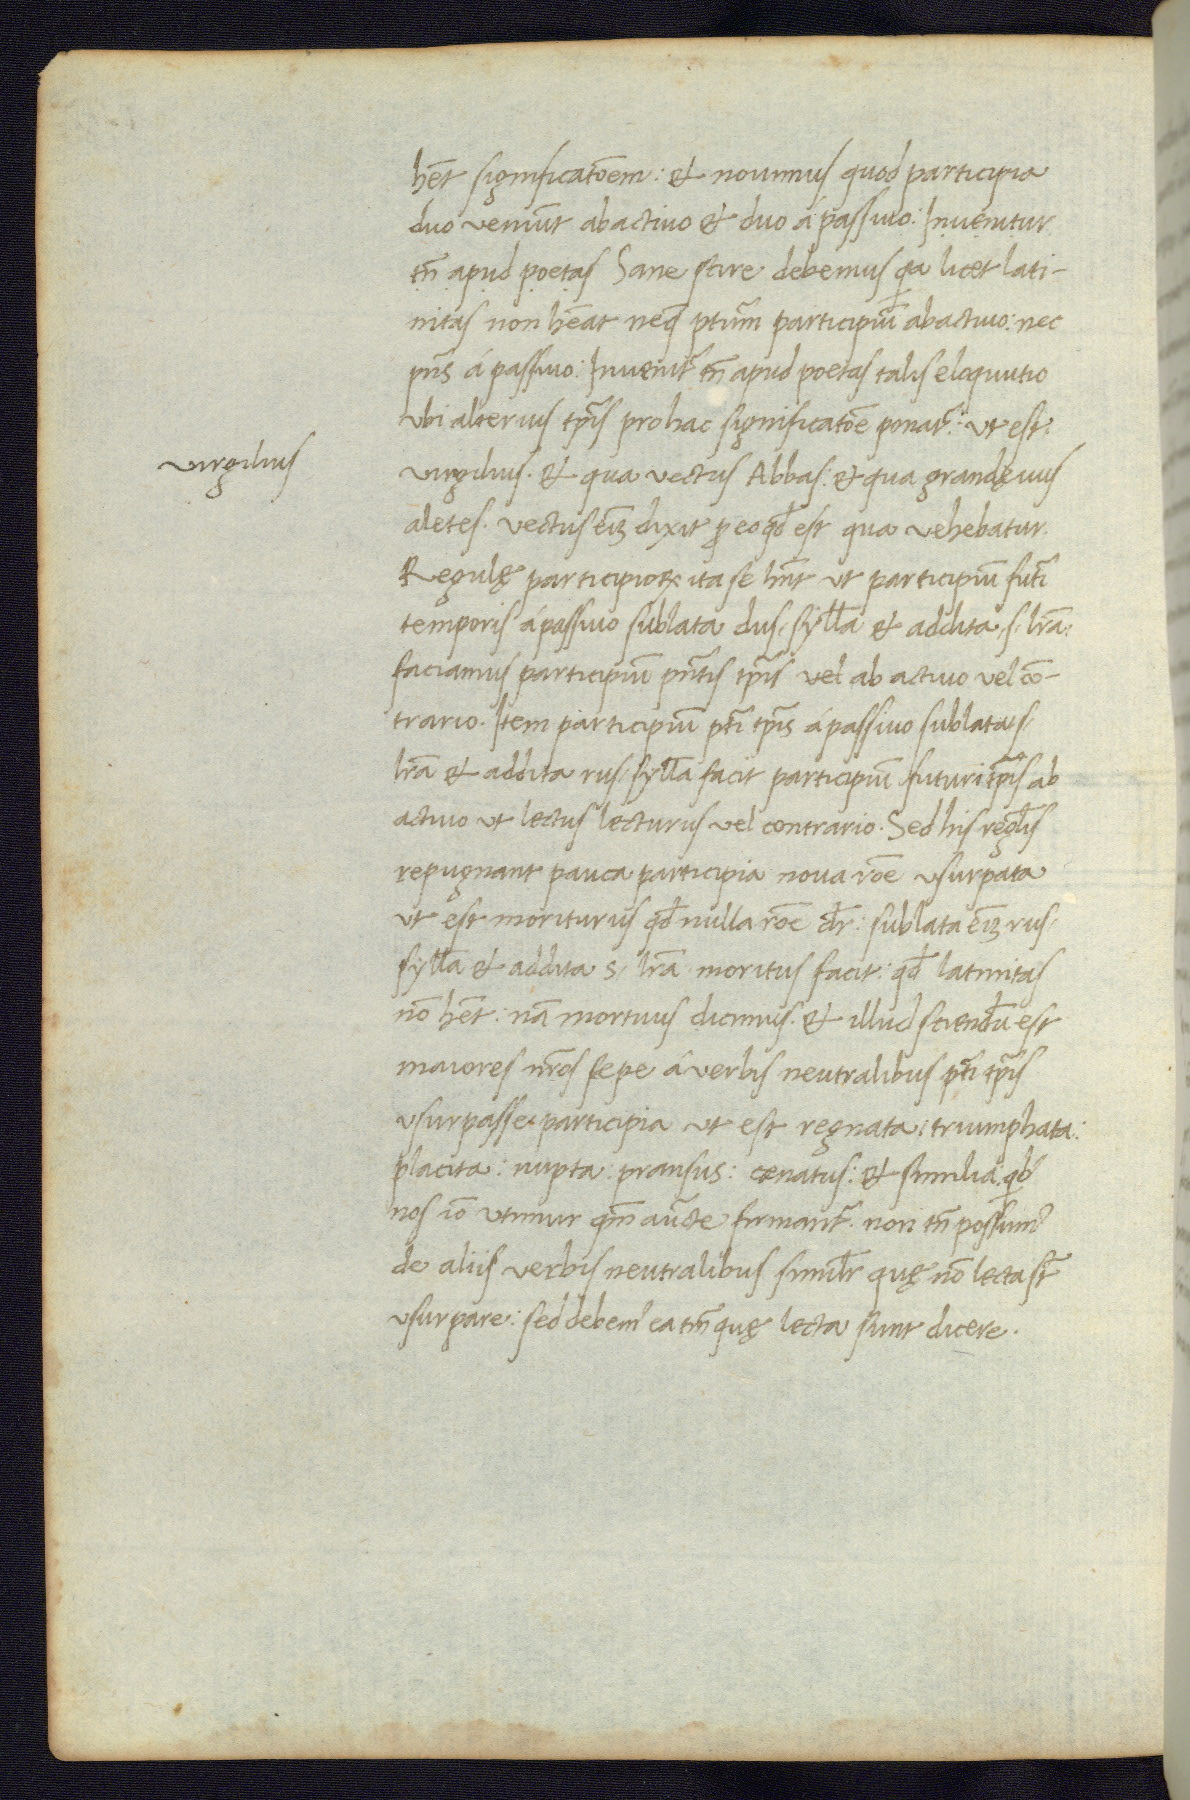 hēt significatōem: et nouimus quod participia
duo veniūt ab actiuo et duo á passiuo: Inuenitur
tn̄ apud poetas Sane scire debemus qa licet lati-
nitas non hēat neq̄ ptum̄ participiū ab actiuo: nec
pn̄s á passiuo: Inuenit᷑ tn̄ apud poetas talis eloquutio
vbi alterius tp̄is pro hac significatōe ponat᷑: vt est:
virgilius
virgilius. et qua vectus Abbas: et qua grandęuus
aletes. vectus eīȝ dixit ꝓ eo qđ est qua vehebatur.
Regulę participioꝝ ita se hn̄t vt participiū futī
temporis á passiuo sublata dus, sylła et addita, s, lrā:
faciamus participiū pn̄tis tp̄is vel ab actiuo vel cō-
trario. Item participiū ptī tp̄is á passiuo sublata, s,
lrā et addita rus, sylła facit participiū futuri tp̄is ab
actiuo vt lectus lecturus vel contrario. Sed his regłis
repugnant pauca participia noua rōe vsurpata
vt est moriturus qđ nulla rōe dr̄: sublata eīȝ rus,
sylła et addita s, lrā moritus facit: qđ latinitas
nō hēt: nā mortuus dicimus. et illud sciendū est
maiores nr̄os sepe á verbis neutralibus ptī tp̄is
vsurpasse participia vt est regnata: triumphata:
placita: nupta: pransus: cenatus: et similia: qđ
nos iō vtimur qm̄ aūcte firmant᷑. non tn̄ possum᷒
de aliis verbis neutralibus simil̄r quę nō lecta st̄
vsurpare: sed debem᷒ ea tm̄ quę lecta sunt dicere.